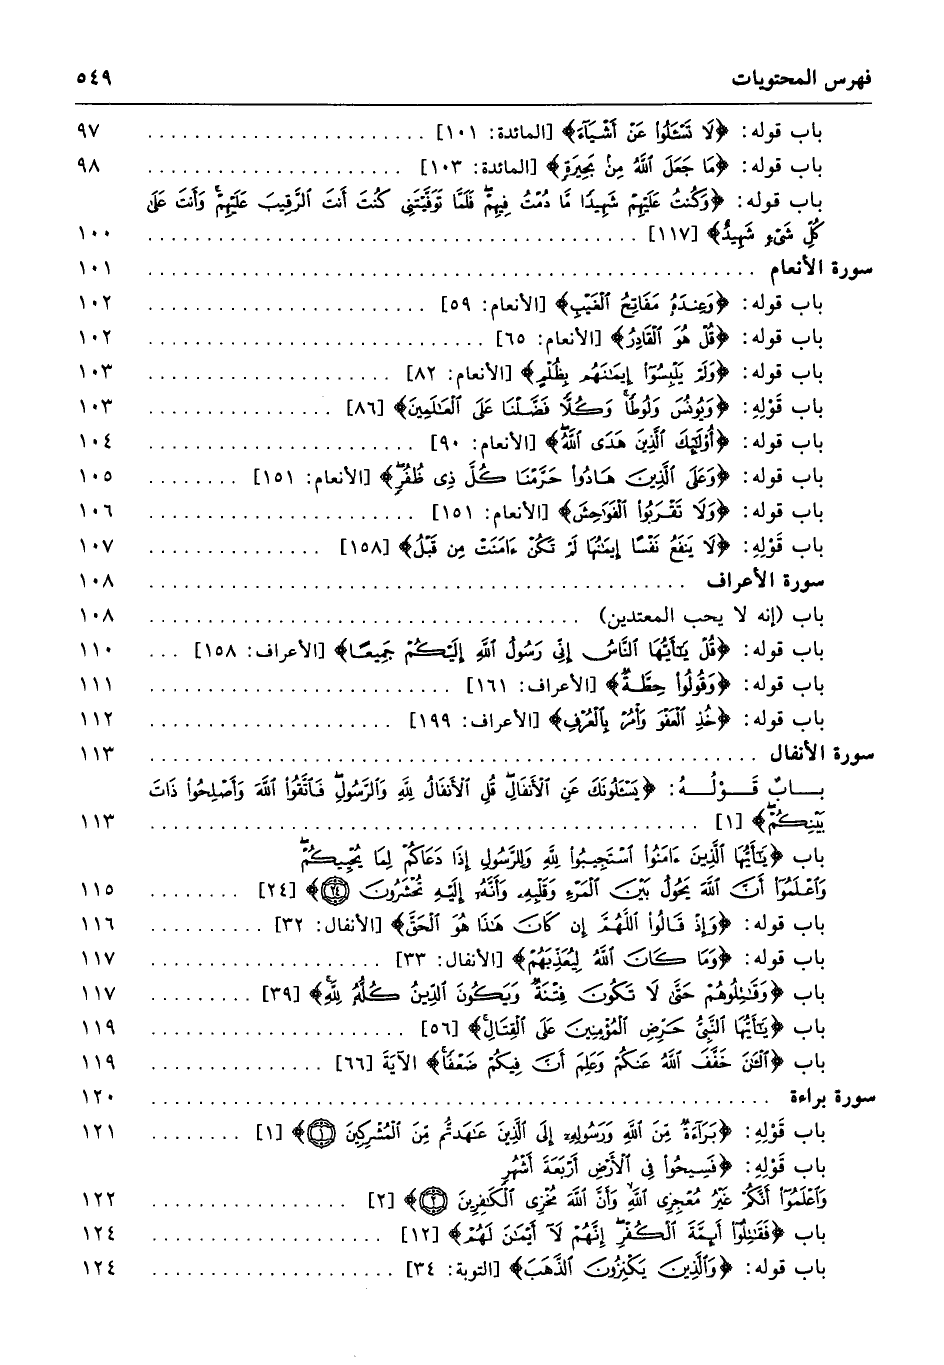 فهرس المحتويات ٥٤٩
باب قوله: ﴿لَا تَسْـَٔلُوا۟ عَنْ أَشْيَآءَ﴾ [المائدة: ١٠١] ٩٧
باب قوله: ﴿مَا جَعَلَ ٱللَّهُ مِنۢ بَحِيرَةٍ﴾ [المائدة: ١٠٣] ٩٨
باب قوله: ﴿وَكُنتُ عَلَيْهِمْ شَهِيدًا مَّا دُمْتُ فِيهِمْ ۖ فَلَمَّا تَوَفَّيْتَنِى كُنتَ أَنتَ ٱلرَّقِيبَ عَلَيْهِمْ ۚ وَأَنتَ عَلَىٰ
كُلِّ شَىْءٍ شَهِيدٌ﴾ [١١٧] ١٠٠
سورة الأنعام ١٠١
باب قوله: ﴿وَعِندَهُۥ مَفَاتِحُ ٱلْغَيْبِ﴾ [الأنعام: ٥٩] ١٠٢
باب قوله: ﴿قُلْ هُوَ ٱلْقَادِرُ﴾ [الأنعام: ٦٥] ١٠٢
باب قوله: ﴿وَلَمْ يَلْبِسُوٓا۟ إِيمَـٰنَهُم بِظُلْمٍ﴾ [الأنعام: ٨٢] ١٠٣
باب قَوْلِهِ: ﴿وَيُونُسَ وَلُوطًا ۚ وَكُلًّا فَضَّلْنَا عَلَى ٱلْعَـٰلَمِينَ﴾ [٨٦] ١٠٣
باب قوله: ﴿أُو۟لَـٰٓئِكَ ٱلَّذِينَ هَدَى ٱللَّهُ ۖ﴾ [الأنعام: ٩٠] ١٠٤
باب قوله: ﴿وَعَلَى ٱلَّذِينَ هَادُوا۟ حَرَّمْنَا كُلَّ ذِى ظُفُرٍ ۖ﴾ [الأنعام: ١٥١] ١٠٥
باب قوله: ﴿وَلَا تَقْرَبُوا۟ ٱلْفَوَٰحِشَ﴾ [الأنعام: ١٥١] ١٠٦
باب قَوْلِهِ: ﴿لَا يَنفَعُ نَفْسًا إِيمَـٰنُهَا لَمْ تَكُنْ ءَامَنَتْ مِن قَبْلُ﴾ [١٥٨] ١٠٧
سورة الأعراف ١٠٨
باب (إنه لا يحب المعتدين) ١٠٨
باب قوله: ﴿قُلْ يَـٰٓأَيُّهَا ٱلنَّاسُ إِنِّى رَسُولُ ٱللَّهِ إِلَيْكُمْ جَمِيعًا﴾ [الأعراف: ١٥٨] ١١٠
باب قوله: ﴿وَقُولُوا۟ حِطَّةٌ﴾ [الأعراف: ١٦١] ١١١
باب قوله: ﴿خُذِ ٱلْعَفْوَ وَأْمُرْ بِٱلْعُرْفِ﴾ [الأعراف: ١٩٩] ١١٢
سورة الأنفال ١١٣
بابٌ قَوْلُهُ: ﴿يَسْـَٔلُونَكَ عَنِ ٱلْأَنفَالِ ۖ قُلِ ٱلْأَنفَالُ لِلَّهِ وَٱلرَّسُولِ ۖ فَٱتَّقُوا۟ ٱللَّهَ وَأَصْلِحُوا۟ ذَاتَ
بَيْنِكُمْ ۖ﴾ [١] ١١٣
باب ﴿يَـٰٓأَيُّهَا ٱلَّذِينَ ءَامَنُوا۟ ٱسْتَجِيبُوا۟ لِلَّهِ وَلِلرَّسُولِ إِذَا دَعَاكُمْ لِمَا يُحْيِيكُمْ ۖ
وَٱعْلَمُوٓا۟ أَنَّ ٱللَّهَ يَحُولُ بَيْنَ ٱلْمَرْءِ وَقَلْبِهِۦ وَأَنَّهُۥٓ إِلَيْهِ تُحْشَرُونَ ٢٤﴾ [٢٤] ١١٥
باب قوله: ﴿وَإِذْ قَالُوا۟ ٱللَّهُمَّ إِن كَانَ هَـٰذَا هُوَ ٱلْحَقَّ﴾ [الأنفال: ٣٢] ١١٦
باب قوله: ﴿وَمَا كَانَ ٱللَّهُ لِيُعَذِّبَهُمْ﴾ [الأنفال: ٣٣] ١١٧
باب ﴿وَقَـٰتِلُوهُمْ حَتَّىٰ لَا تَكُونَ فِتْنَةٌ وَيَكُونَ ٱلدِّينُ كُلُّهُۥ لِلَّهِ ۚ﴾ [٣٩] ١١٧
باب ﴿يَـٰٓأَيُّهَا ٱلنَّبِىُّ حَرِّضِ ٱلْمُؤْمِنِينَ عَلَى ٱلْقِتَالِ ۚ﴾ [٥٦] ١١٩
باب ﴿ٱلْـَٔـٰنَ خَفَّفَ ٱللَّهُ عَنكُمْ وَعَلِمَ أَنَّ فِيكُمْ ضَعْفًا ۚ﴾ الآيَةَ [٦٦] ١١٩
سورة براءة ١٢٠
باب قَوْلِهِ: ﴿بَرَآءَةٌ مِّنَ ٱللَّهِ وَرَسُولِهِۦٓ إِلَى ٱلَّذِينَ عَـٰهَدتُّم مِّنَ ٱلْمُشْرِكِينَ ١﴾ [١] ١٢١
باب قَوْلِهِ: ﴿فَسِيحُوا۟ فِى ٱلْأَرْضِ أَرْبَعَةَ أَشْهُرٍ
وَٱعْلَمُوٓا۟ أَنَّكُمْ غَيْرُ مُعْجِزِى ٱللَّهِ ۙ وَأَنَّ ٱللَّهَ مُخْزِى ٱلْكَـٰفِرِينَ ٢﴾ [٢] ١٢٢
باب ﴿فَقَـٰتِلُوٓا۟ أَئِمَّةَ ٱلْكُفْرِ ۙ إِنَّهُمْ لَآ أَيْمَـٰنَ لَهُمْ﴾ [١٢] ١٢٤
باب قوله: ﴿وَٱلَّذِينَ يَكْنِزُونَ ٱلذَّهَبَ﴾ [التوبة: ٣٤] ١٢٤